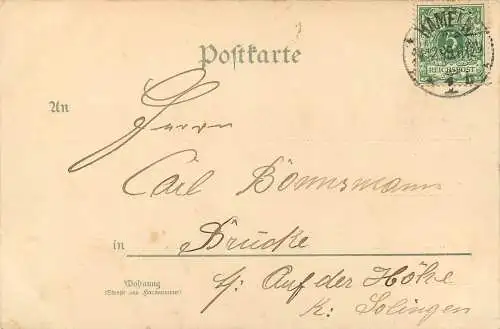 HAMELN
5
REICHSPOST
Postkarte
An
Herrn
Carl Bönnsmann
in Brücke
Auf der Höhe
Wohnung
(Straße und Hausnummer)
K: Solingen